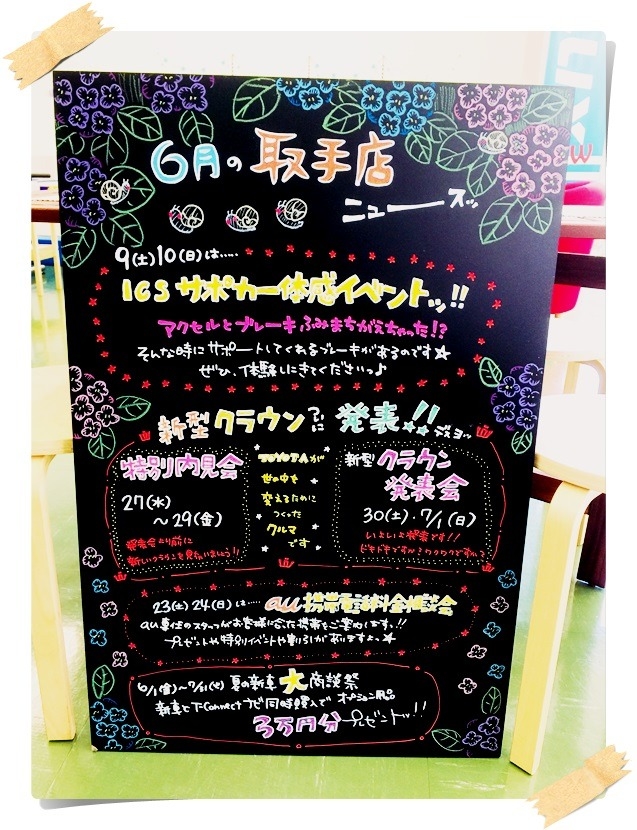 6月の取手店
ニュースッ
9(土)10(日)は.....
ICSサポカー体感イベントッ!!
アクセルとブレーキふみまちがえちゃった!?
そんな時にサポートしてくれるブレーキがあるのです☆
ぜひ、体験しにきてくださいっ♪
新型クラウンついに発表!!ですヨッ
特別内見会
27(水)
～29(金)
発表会より前に
新しいクラウンを見ちゃいましょう!!
TOYOTAが
世の中を
変えるために
つくった
クルマ
です
新型クラウン
発表会
30(土)・7/1(日)
いよいよ発表です!!
ドキドキですか?ワクワクですか?
23(土)24(日)は....au携帯電話料金相談会
au専任のスタッフがお客様に合った携帯をご案内します。!!
プレゼントや特別イベントや割引がありますよっ☆
夏の新車大商談祭
新車とT-Connectナビ同時購入でオプション用品
3万円分プレゼントッ!!